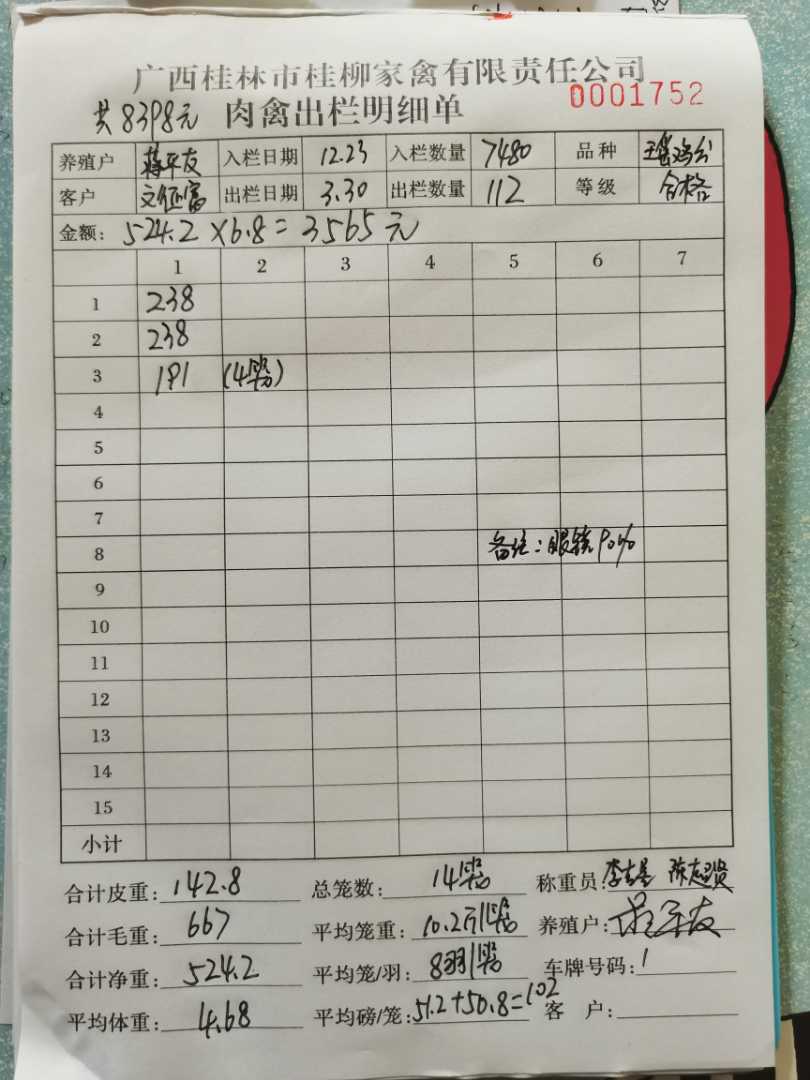 广西桂林市桂柳家禽有限责任公司
共8398元 肉禽出栏明细单 0001752
养殖户 蒋平友 入栏日期 12.23 入栏数量 7480 品种
客户 出栏日期 3.30 出栏数量 112 等级 合格
金额: 524.2×6.8=3565元
1 2 3 4 5 6 7
1 238
2 238
3 191 (4笼)
4
5
6
7
8 备注:眼镜90%
9
10
11
12
13
14
15
小计
合计皮重: 142.8 总笼数: 14笼 称重员:
合计毛重: 667 平均笼重: 10.2斤/笼 养殖户: 蒋平友
合计净重: 524.2 平均笼/羽: 8羽/笼 车牌号码: 1
平均体重: 4.68 平均磅/笼: 51.2+50.8=102 客 户: